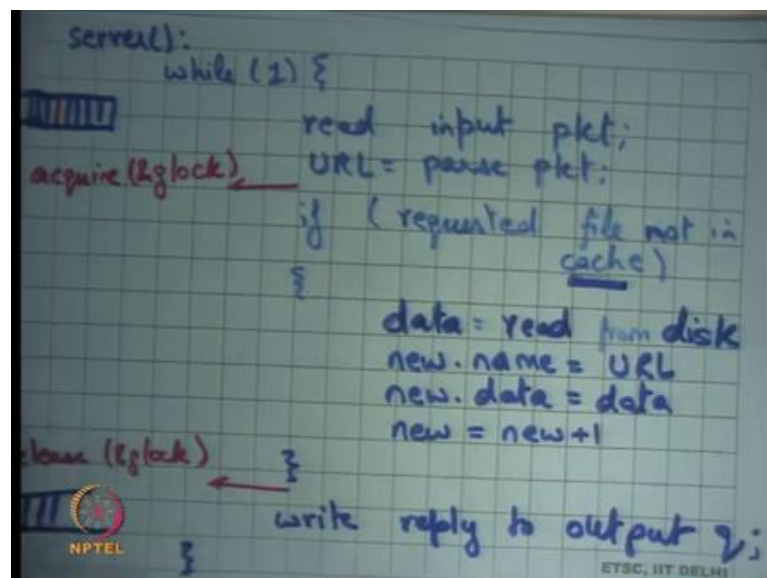 server():
while (1) {
read input pkt;
URL = parse pkt;
acquire(&glock)
if (requested file not in
cache)
{
data = read from disk
new.name = URL
new.data = data
new = new+1
}
lease (&glock)
write reply to output q;
}
NPTEL
ETSC, IIT DELHI